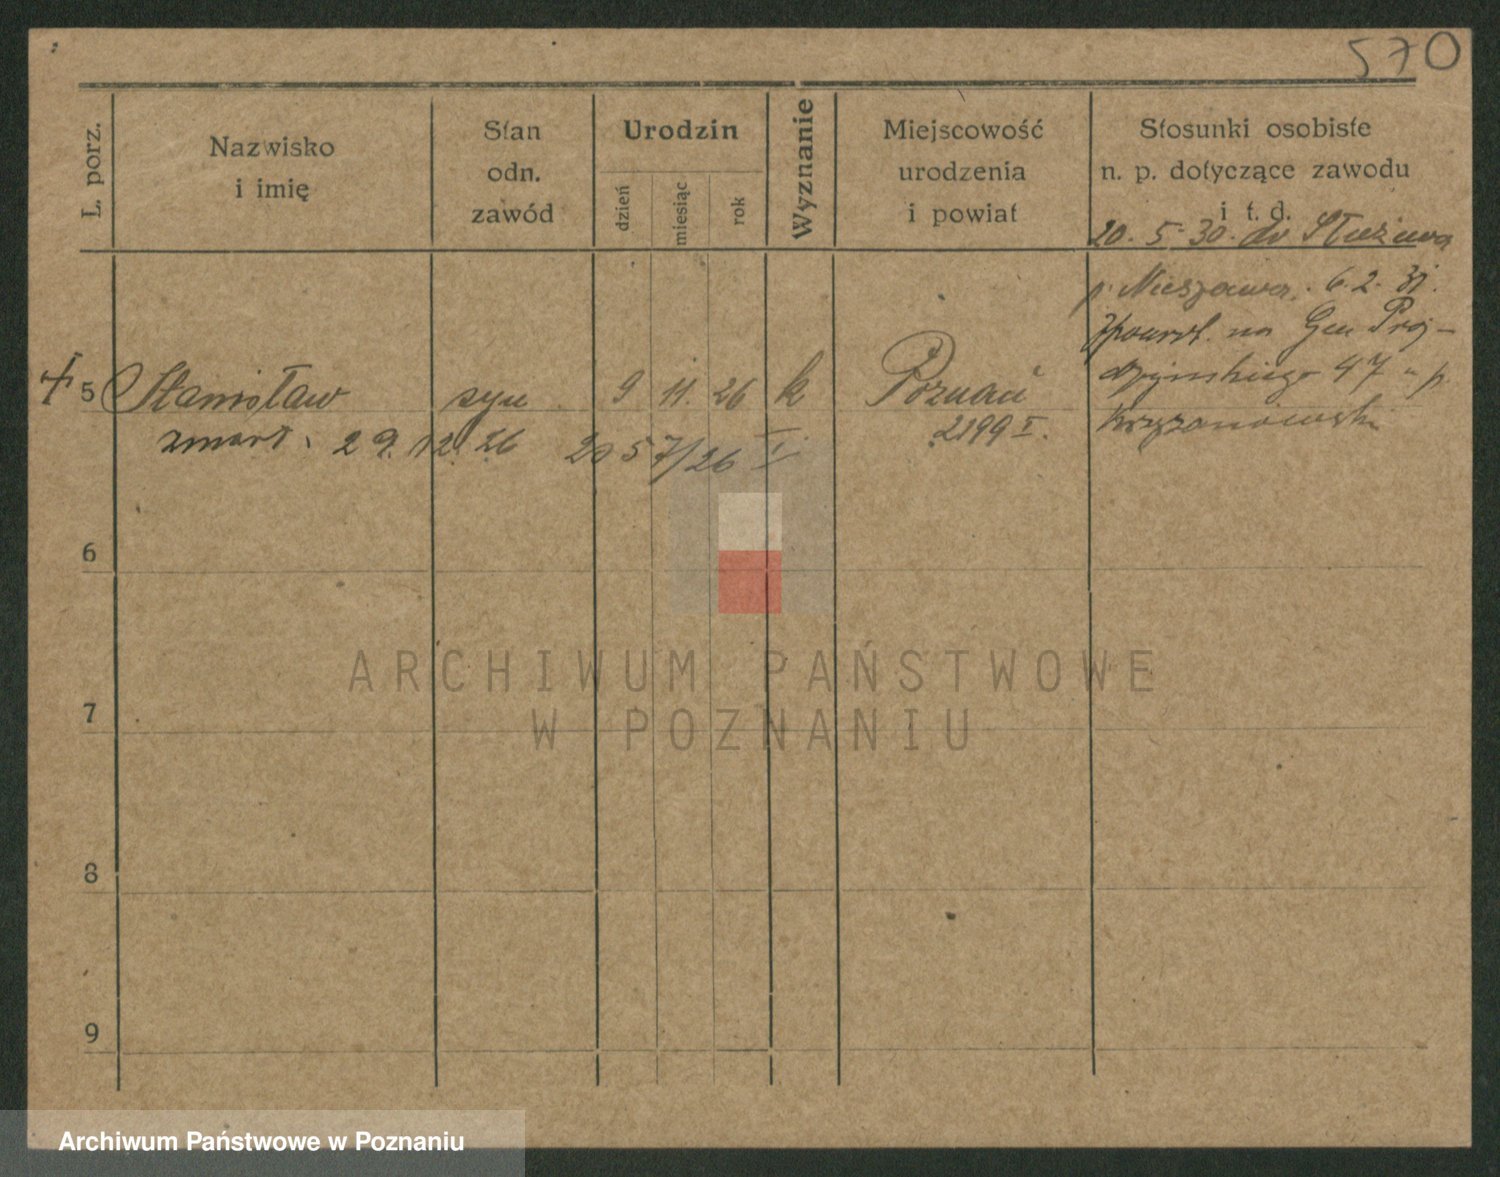 570
L. porz.
Nazwisko
i imię
Stan
odn.
zawód
Urodzin
dzień
miesiąc
rok
Wyznanie
Miejscowość
urodzenia
i powiat
Stosunki osobiste
n. p. dotyczące zawodu
i t. d.
20. 5. 30. do Służewa
p. Nieszawa. 6. 2. 31.
na Gen Prą-
dzyńskiego 47 u p.
Krzyżanowski
+ 5 Stanisław syn 9 11. 26 k Poznań
2199 I.
zmarł. 29. 12. 26 2057/26 I.
6
7
8
9
ARCHIWUM PAŃSTWOWE
W POZNANIU
Archiwum Państwowe w Poznaniu